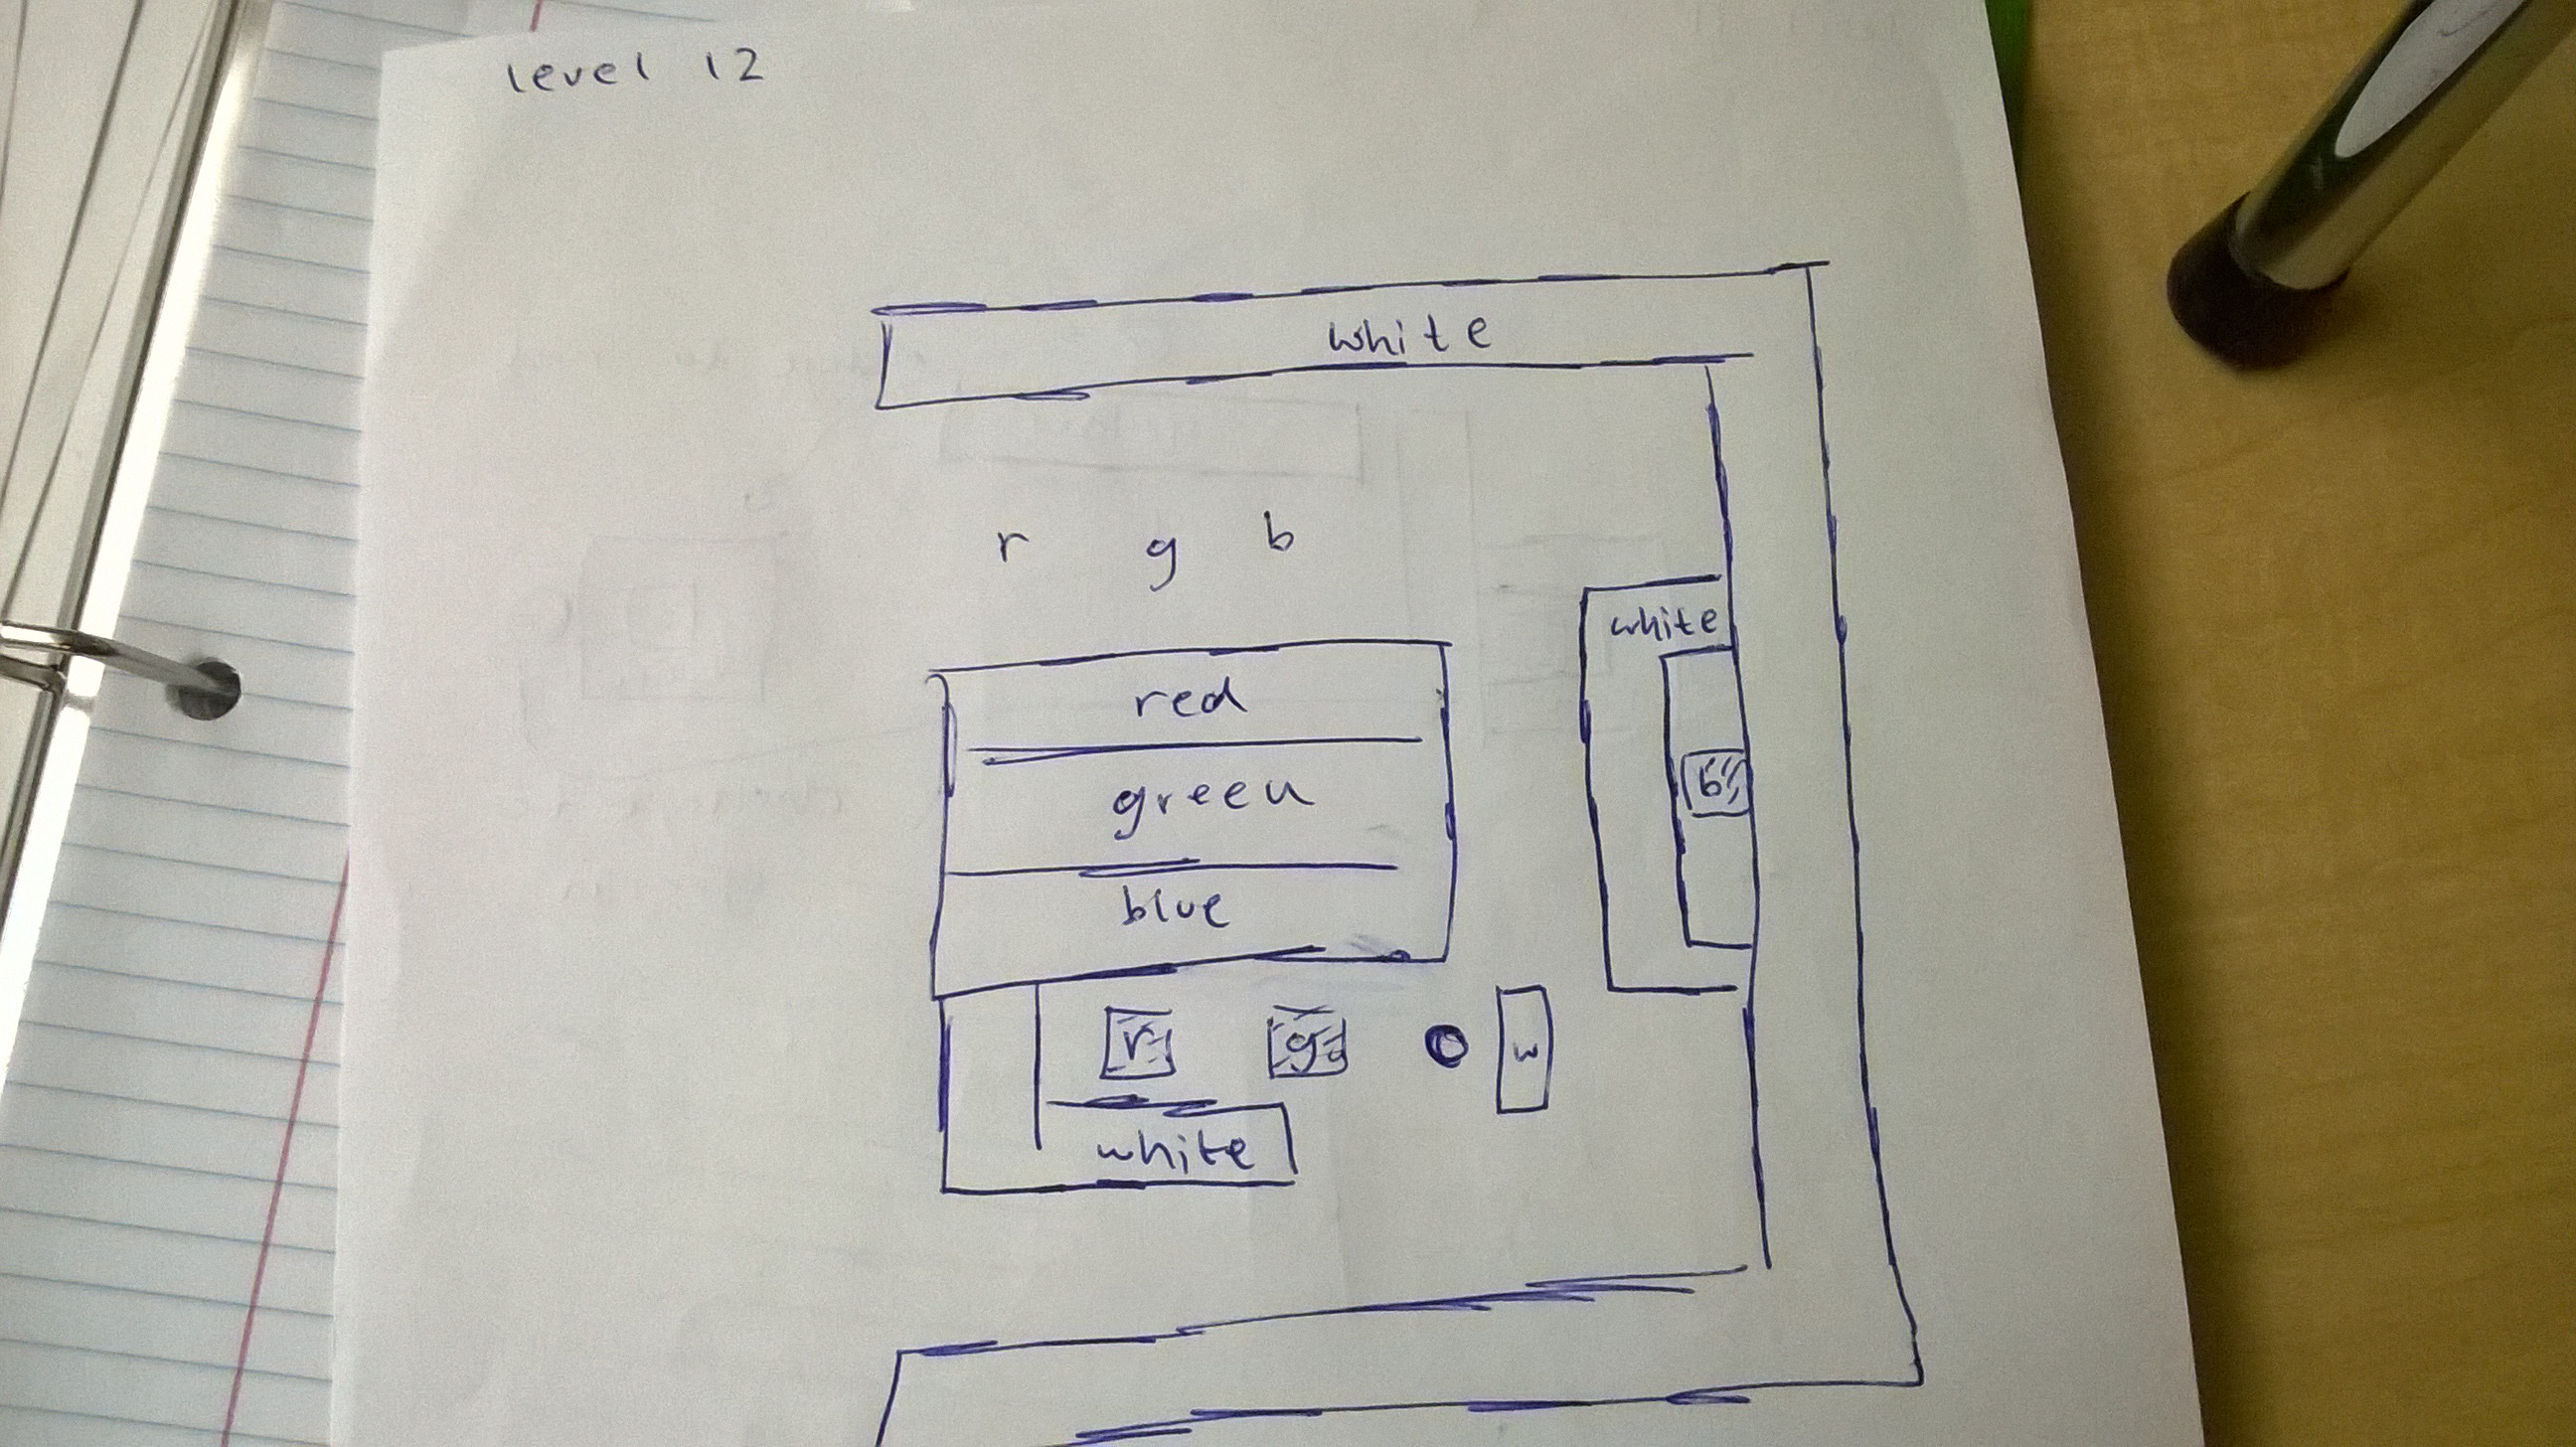 level 12
white
r g b
white
red
green
b
blue
r g w
white